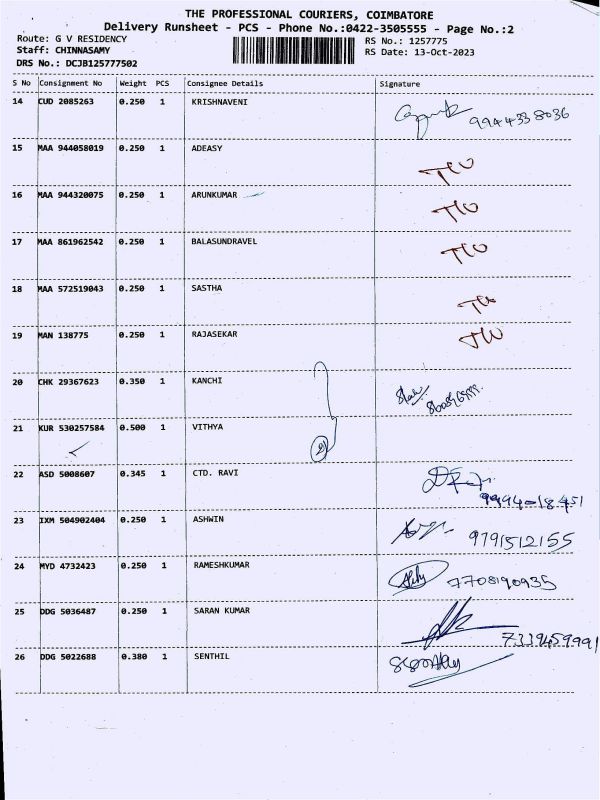 THE PROFESSIONAL COURIERS, COIMBATORE
Delivery Runsheet - PCS - Phone No.:0422-3505555 - Page No.:2
Route: G V RESIDENCY
RS No.: 1257775
Staff: CHINNASAMY
RS Date: 13-Oct-2023
DRS No.: DCJB125777502
S No Consignment No Weight PCS Consignee Details Signature
14 CUD 2085263 0.250 1 KRISHNAVENI
9944338036
15 MAA 944058019 0.250 1 ADEASY
16 MAA 944320075 0.250 1 ARUNKUMAR
17 MAA 861962542 0.250 1 BALASUNDRAVEL
18 MAA 572519043 0.250 1 SASTHA
19 MAN 138775 0.250 1 RAJASEKAR
20 CHK 29367623 0.350 1 KANCHI
21 KUR 530257584 0.500 1 VITHYA
22 ASD 5008607 0.345 1 CTD. RAVI
23 IXM 504902404 0.250 1 ASHWIN
9791512155
24 MYD 4732423 0.250 1 RAMESHKUMAR
7708190935
25 DDG 5036487 0.250 1 SARAN KUMAR
7339459991
26 DDG 5022688 0.380 1 SENTHIL